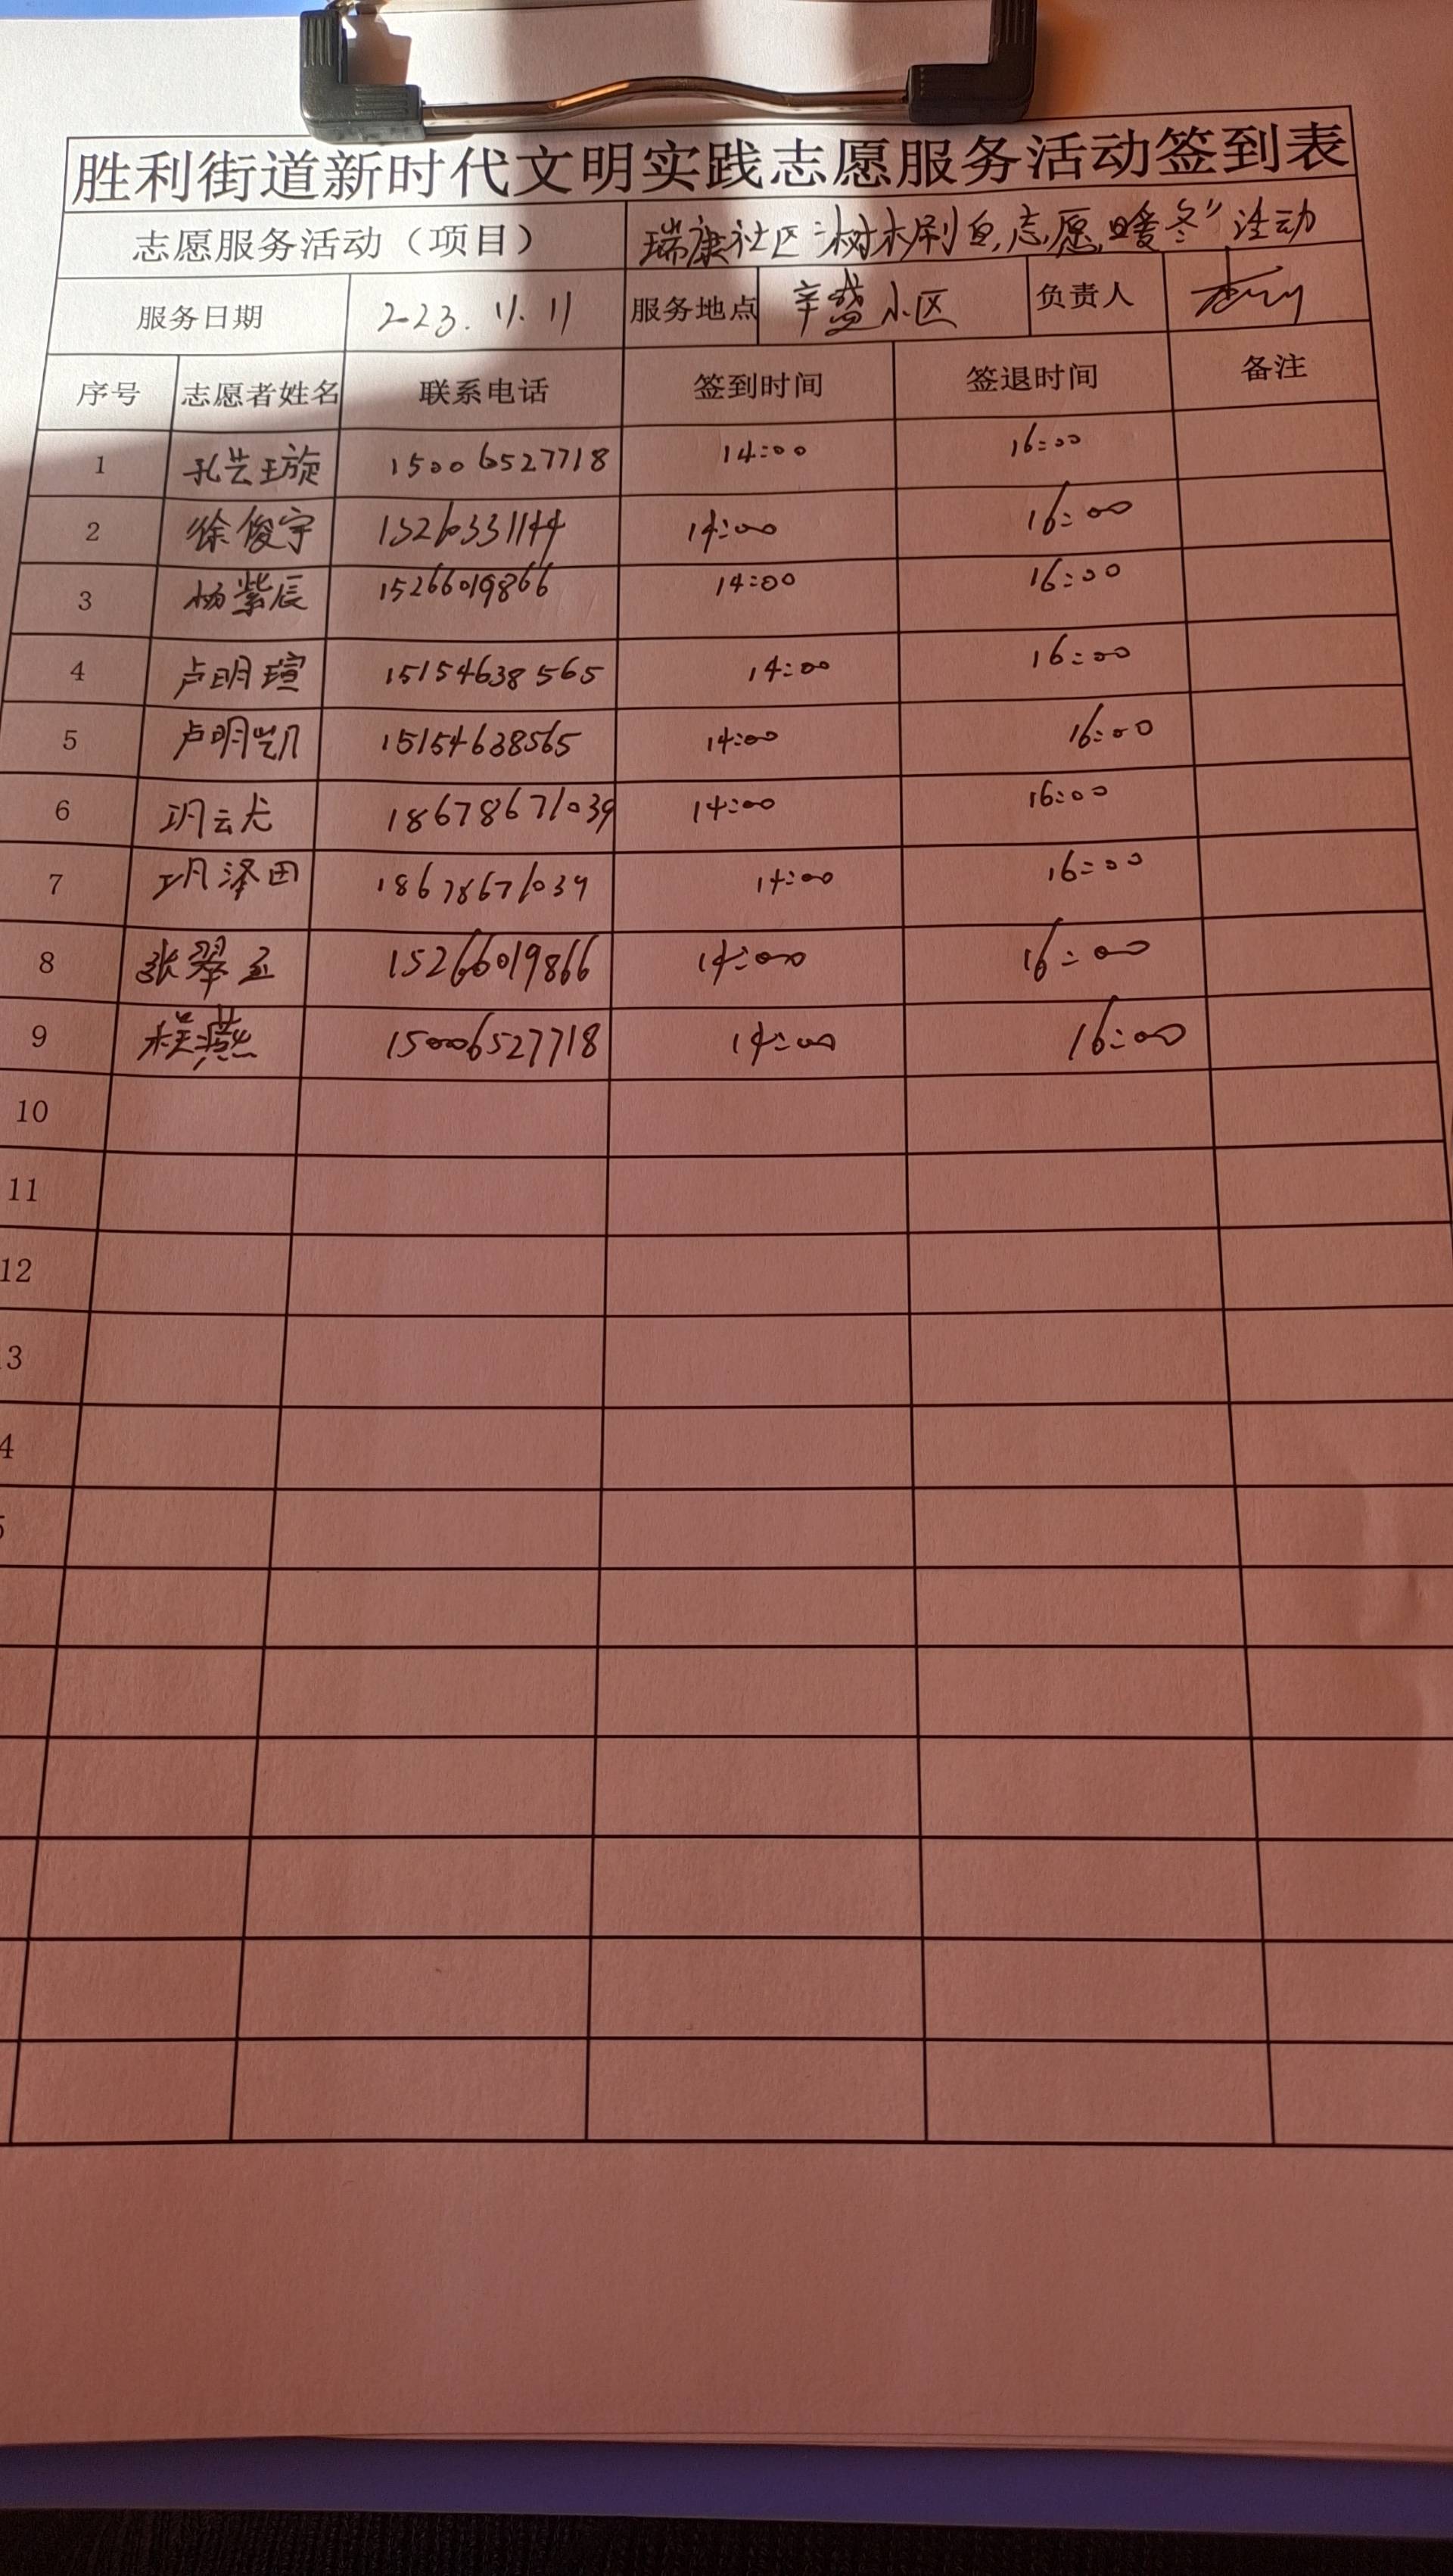 胜利街道新时代文明实践志愿服务活动签到表
志愿服务活动（项目） 瑞康社区“树木刷白,志愿暖冬”活动
服务日期 2023.11.11 服务地点 辛盛小区 负责人
序号 志愿者姓名 联系电话 签到时间 签退时间 备注
1 15006527718 14:00 16:00
2 徐俊宇 14:00 16:00
3 杨紫辰 15266019866 14:00 16:00
4 卢明瑄 15154638565 14:00 16:00
5 卢明凯 15154638565 14:00 16:00
6 18678671039 14:00 16:00
7 18678671039 14:00 16:00
8 张翠玉 15266019866 14:00 16:00
9 15006527718 14:00 16:00
10
11
12
3
4
5